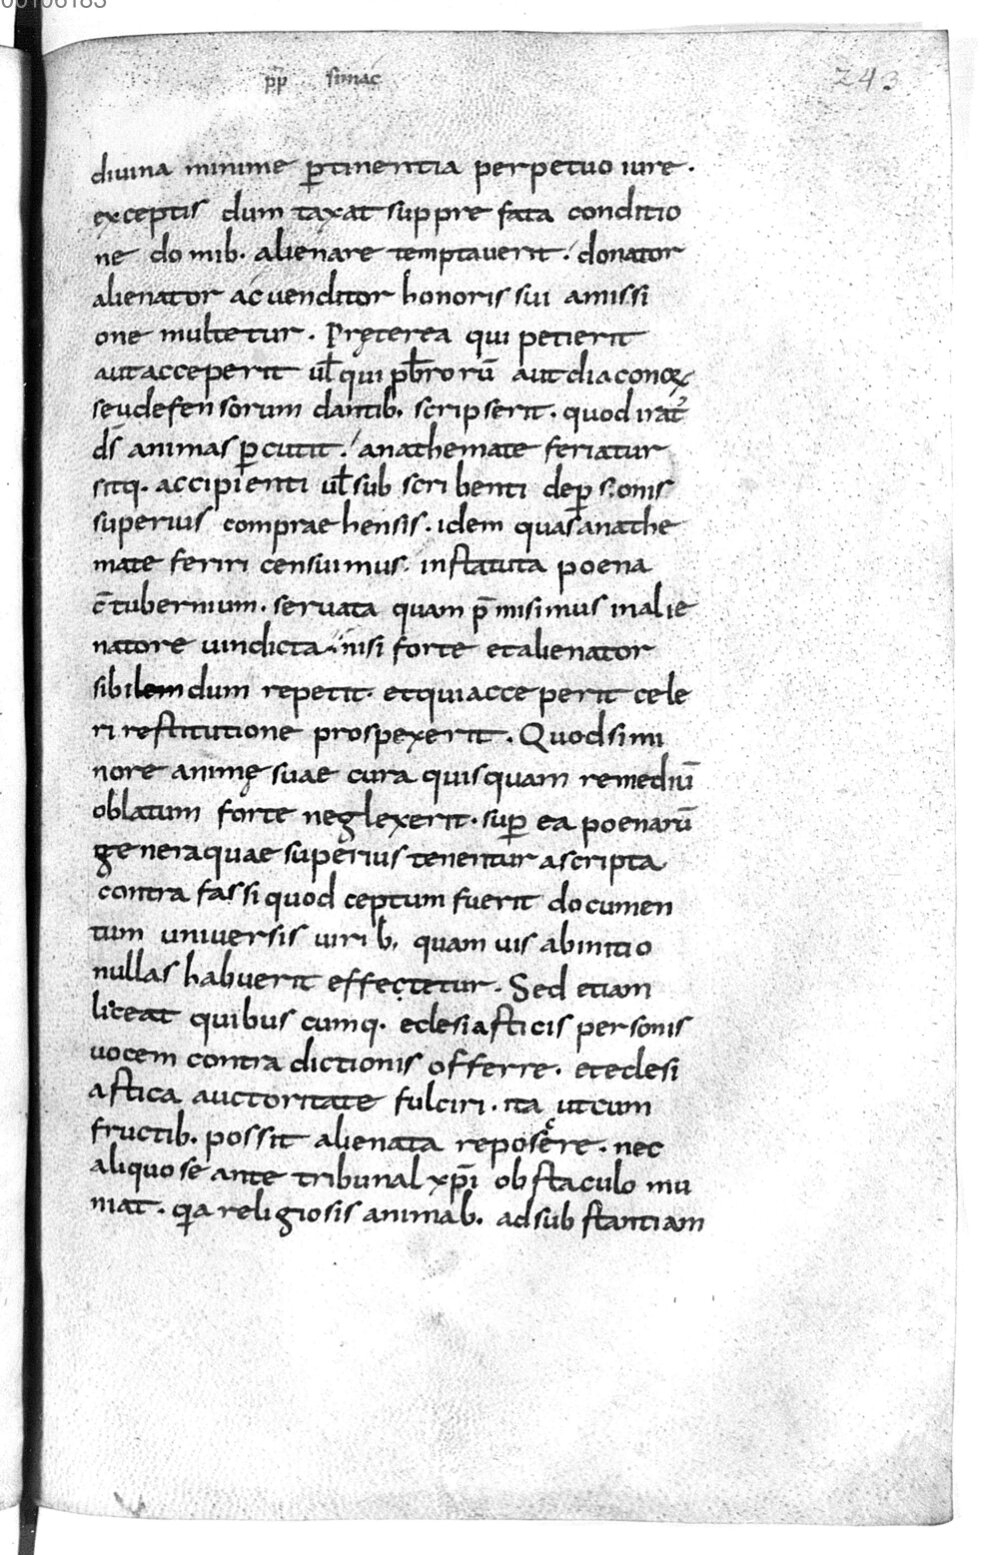 00106183
pp̄ simac̄
243
diuina minime ꝑtinentia perpetuo iure.
exceptis dum taxat suppre fata conditio
ne domib. alienare temptauerit. donator
alienator ac uenditor honoris sui amissi
one multetur. Pręterea qui petierit
aut acceperit ul̄ qui pb̄rorū aut diaconoꝝ
seu defensorum dantib. scripserit. quod irat᾽
ds̄ animas ꝑcutit. anathemate feriatur
sitq. accipienti ul̄ sub scribenti de ꝑsonis
superius comprae hensis. idem quas anathe
mate feriri censuimus. instatuta poena
c̄tubernium. seruata quam p̄misimus in alie
natore uindicta. nisi forte et alienator
sibilem dum repetit. et qui acceperit cele
ri restitutione prospexerit. Quod si mi
nore animę suae cura quisquam remediū
oblatum forte neglexerit. suꝑ ea poenarū
genera quae superius tenentur ascripta
contra fassi quod ceptum fuerit documen
tum uniuersis uirib. quam uis ab initio
nullas habuerit effectetur. Sed etiam
liceat quibus cumq. eclesiasticis personis
uocem contra dictionis offerre. et eclesi
astica auctoritate fulciri. ita ut cum
fructib. possit alienata reposcere. nec
aliquo se ante tribunal xp̄i obstaculo mu
niat. qia religiosis animab. ad substantiam